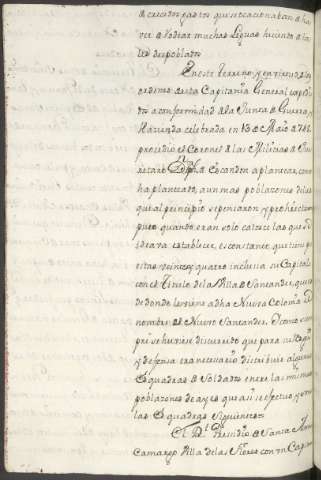 crecidos gastos que ocacionaban a ha
ver de rodear muchas Leguas huiendo a ta
les despoblado
En este terreno, y en virtud de las
ordenes de esta Capitania General expedi
das a conformidad de la Junta de Guerra, y
Hacienda celebrada en 13 de Maio de 748
procedio el Coronel de las Milicias de Que
retaro Dn Joseph de Escandon a plantear, como
ha planteado, aun mas poblazones de las
que al principio se pensaron, y prohiectaron
pues quando eran solo catorce las que se
ideaba establecer, es constante que tiene pu
estas veinte y quatro inclusa su Capital
con el Titulo de la Villa de Santander, que es
de donde le viene a dha Nueva Colonia el
nombre del Nuevo Santander. Y como siem
pre se huviese discurrido que para su Resguardo
y defensa era necesario distribuir algunas
Esquadras de Soldados entre las mismas
poblazones de ay es que asi se efectuo y con
las Esquadras siguientes
El Rl Presidio de Santa Anna
Camargo Villa de las Flores con un Capn